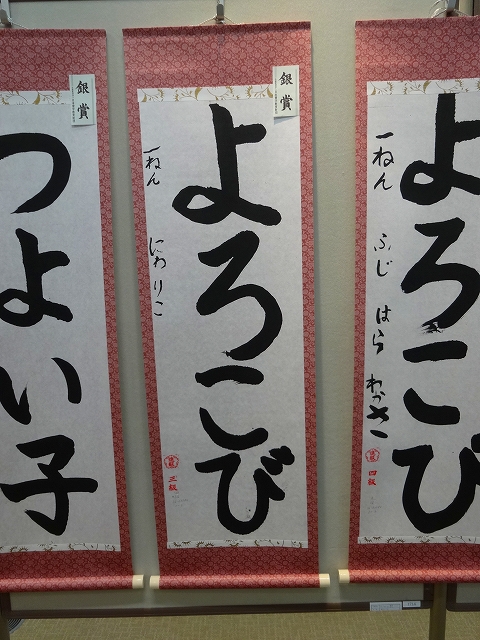 よろこび
一ねん
ふじはらわかさこ
四級
銀賞
よろこび
一ねん
にわりこ
三級
銀賞
つよい子